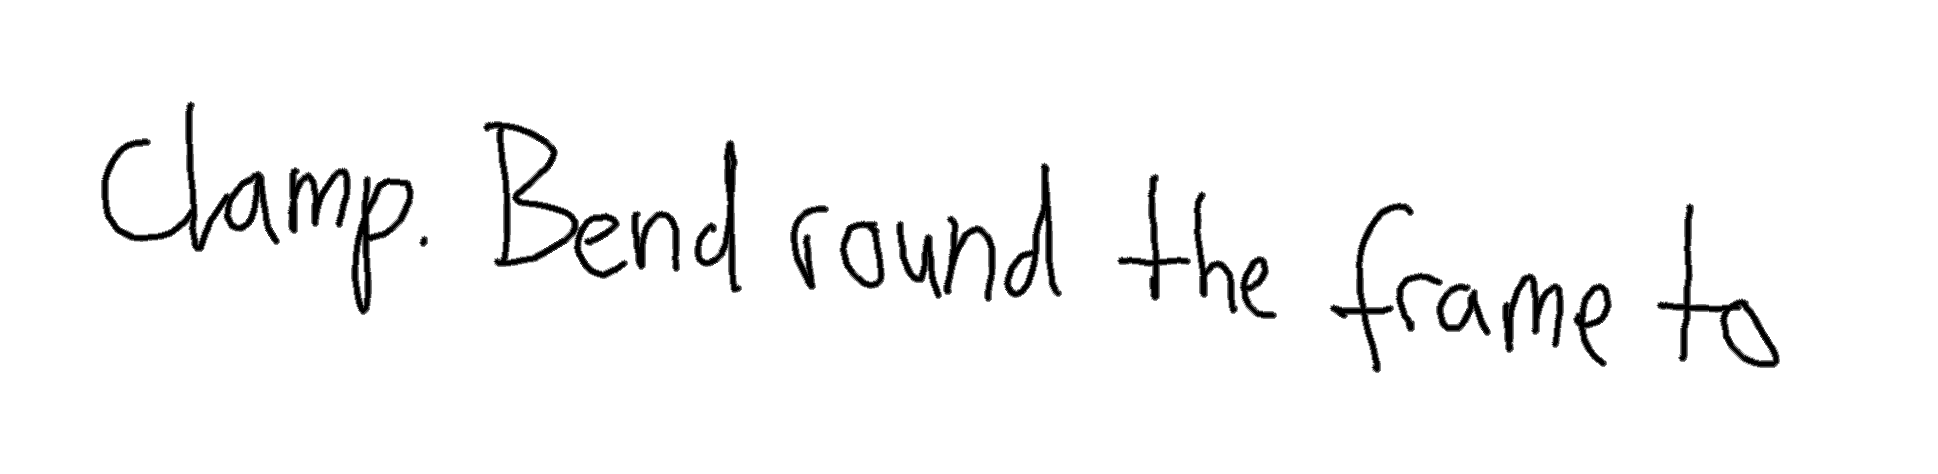 clamp. Bend round the frame to